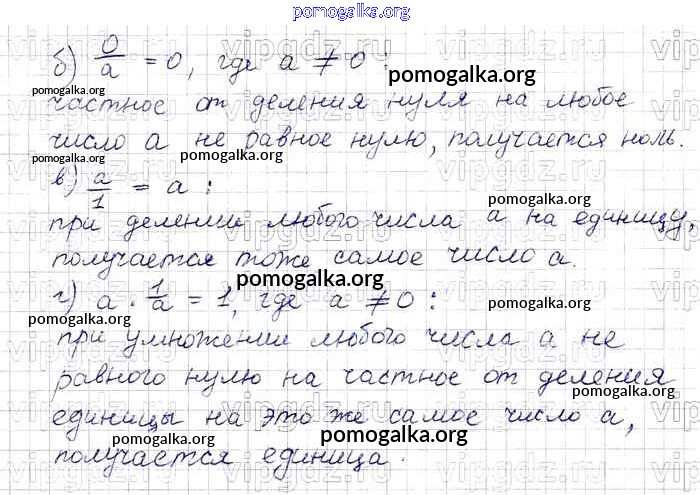 pomogalka.org
б) 0/a = 0, где a ≠ 0 :
pomogalka.org
частное от деления нуля на любое
число a не равное нулю, получается ноль.
pomogalka.org
в) a/1 = a :
pomogalka.org
при делении любого числа a на единицу,
получается тоже самое число a.
pomogalka.org
г) a · 1/a = 1, где a ≠ 0 :
pomogalka.org
pomogalka.org
при умножении любого числа a не
равного нулю на частное от деления
pomogalka.org
единицы на это же самое число a,
pomogalka.org
pomogalka.org
получается единица.